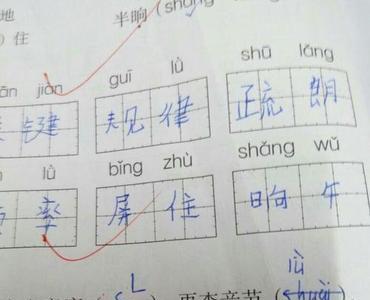 地 半晌（shǎng
）住
jiàn guī lǜ shū lǎng
键 规律 疏朗
lǜ bǐng zhù shǎng wǔ
率 屏住 晌午
lǜ
（ L ），再查音节（